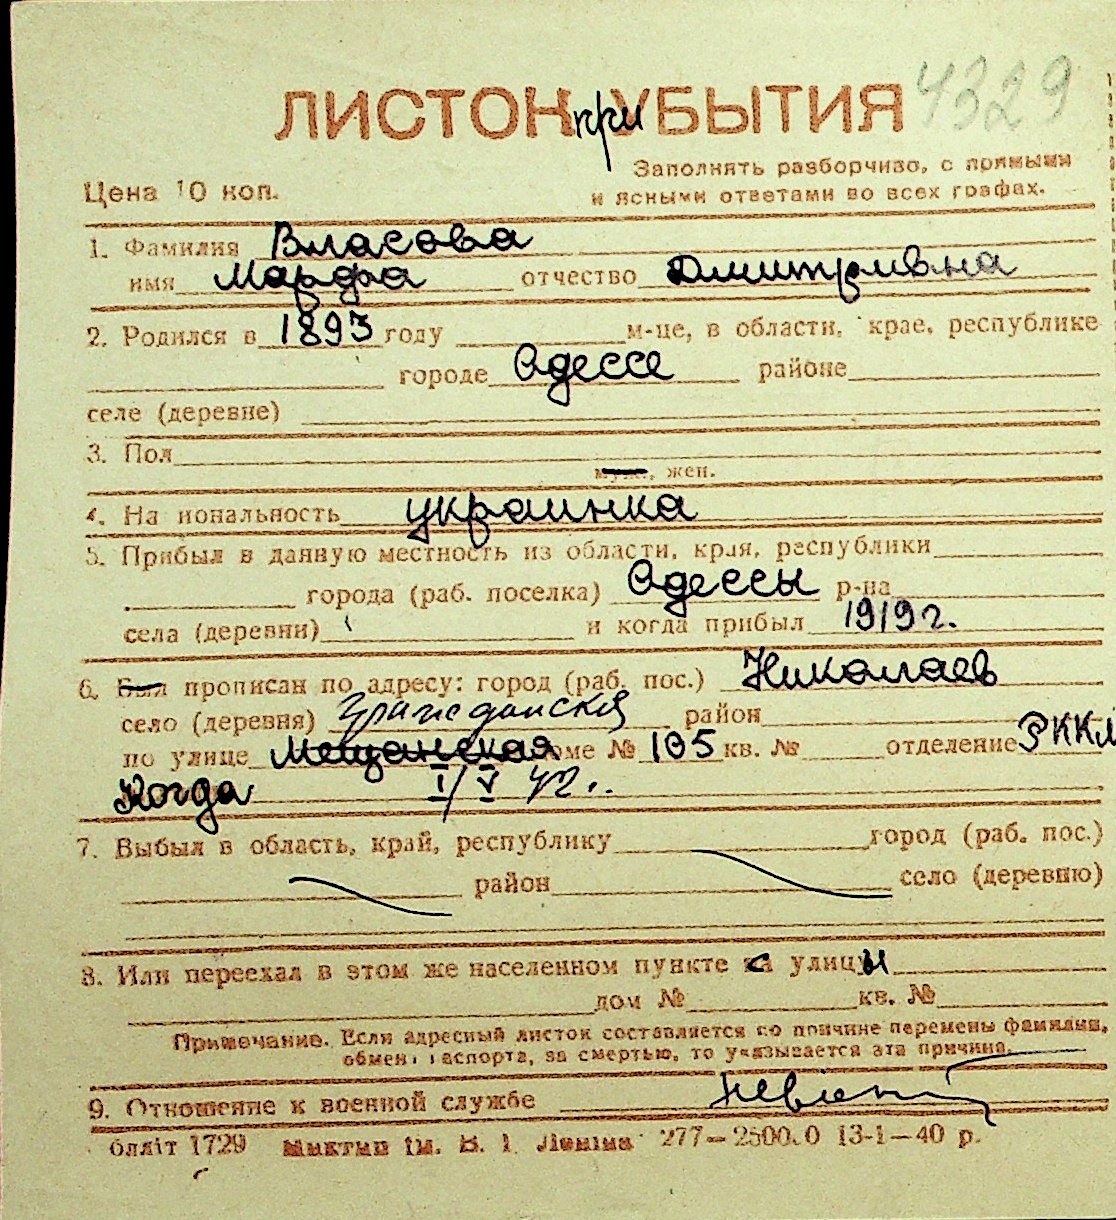 4329
ЛИСТОК при УБЫТИЯ
Заполнять разборчиво, с прямыми
Цена 10 коп.
и ясными ответами во всех графах.
1. Фамилия Власова
имя Марфа отчество Дмитривна
2. Родился в 1893 году м-це, в области, крае, республике
городе Одессе районе
селе (деревне)
3. Пол
муж., жен.
4. На иональность украинка
5. Прибыл в данную местность из области, края, республики
города (раб. поселка) Одессы р-на
села (деревни) и когда прибыл 1919 г.
6. Был прописан по адресу: город (раб. пос.) Николаев
село (деревня) Гражданская район
по улице Мещанская доме № 105 кв. № отделение РККМ
Когда I/V 42 г.
7. Выбыл в область, край, республику город (раб. пос.)
район село (деревню)
8. Или переехал в этом же населенном пункте с улицы
дом № кв. №
Примечание. Если адресный листок составляется по причине перемены фамилии,
обмен паспорта, за смертью, то указывается эта причина.
9. Отношение к военной службе
блліт 1729 Миктип ім. В. І. Леніна 277—25000 13-1—40 р.